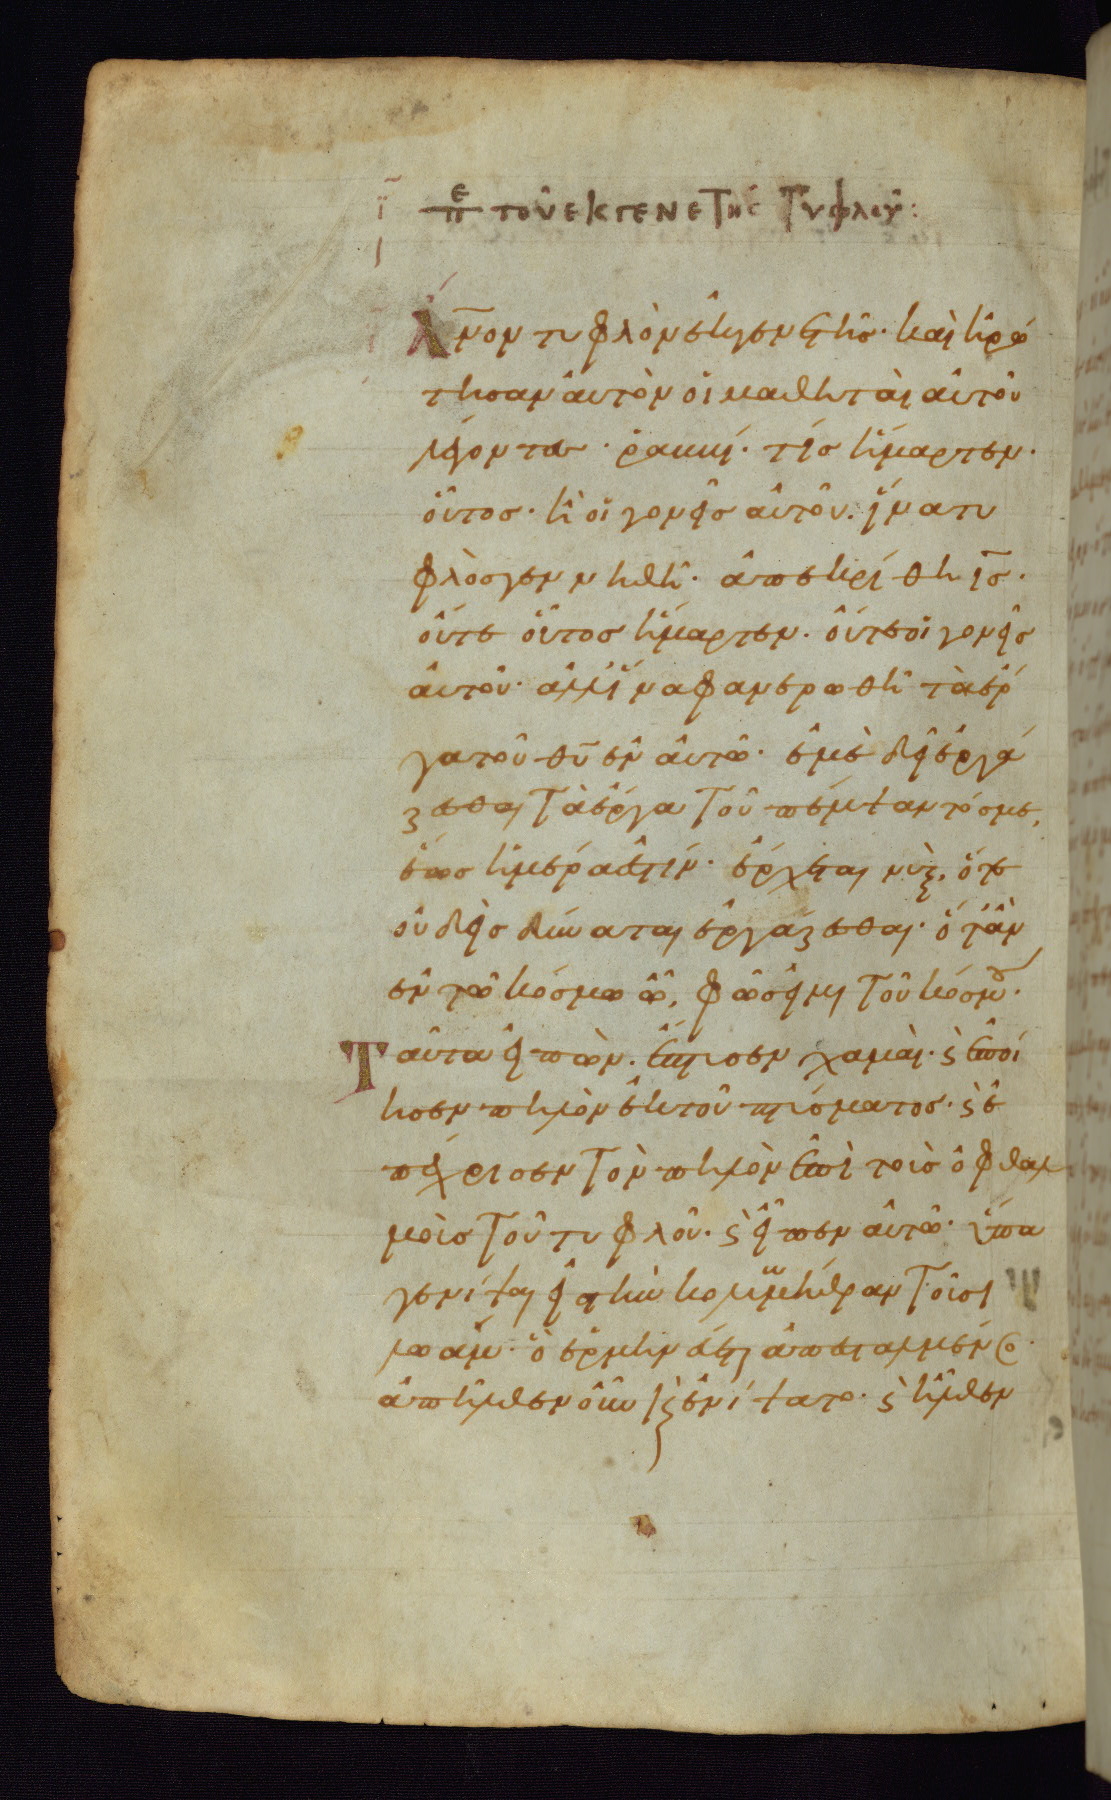 πε τοῦ ἐκ γενετῆς τυφλοῦ:
ἄνον τυφλὸν ἐκ γενετῆς· καὶ ἠρώ
τησαν αὐτὸν οἱ μαθηταὶ αὐτοῦ
λέγοντες· ῥαββί· τίς ἥμαρτεν·
οὗτος· ἢ οἱ γονεῖς αὐτοῦ. ἵνα τυ
φλὸς γεννηθῆ· ἀπεκρίθη ις·
οὔτε οὗτος ἥμαρτεν. οὔτε οἱ γονεῖς
αὐτοῦ· ἀλλ' ἵνα φανερωθῆ τὰ ἔρ
γα τοῦ θυ ἐν αὐτῶ· ἐμὲ δεῖ ἐργά
ζεσθαι τὰ ἔργα τοῦ πέμψαντός με,
ἕως ἡμέρα ἐστίν· ἔρχεται νὺξ, ὅτε
οὐδεὶς δύναται ἐργάζεσθαι· ὅταν
ἐν τῶ κόσμω ὦ, φῶς εἰμι τοῦ κόσμου·
Ταῦτα εἰπὼν. ἔπτυσεν χαμαὶ· ϛ ἐποί
ησεν πηλὸν ἐκ τοῦ πτύσματος· ϛ ἐ
πέχρισεν τὸν πηλὸν ἐπὶ τοὺς ὀφθαλ
μοὺς τοῦ τυφλοῦ. ϛ εἶπεν αὐτῶ· ὕπα
γε νίψαι εἰς τὴν κολυμβήθραν τοῦ σι
λωάμ· ὃ ἑρμηνεύεται ἀπεσταλμένος·
ἀπῆλθεν οὖν ϛ ἐνίψατο· ϛ ἦλθεν